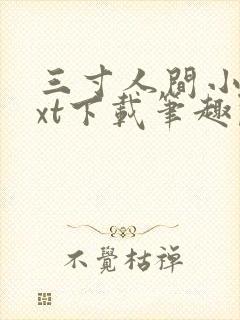 三寸人間小
xt下載筆趣
不覺枯禅